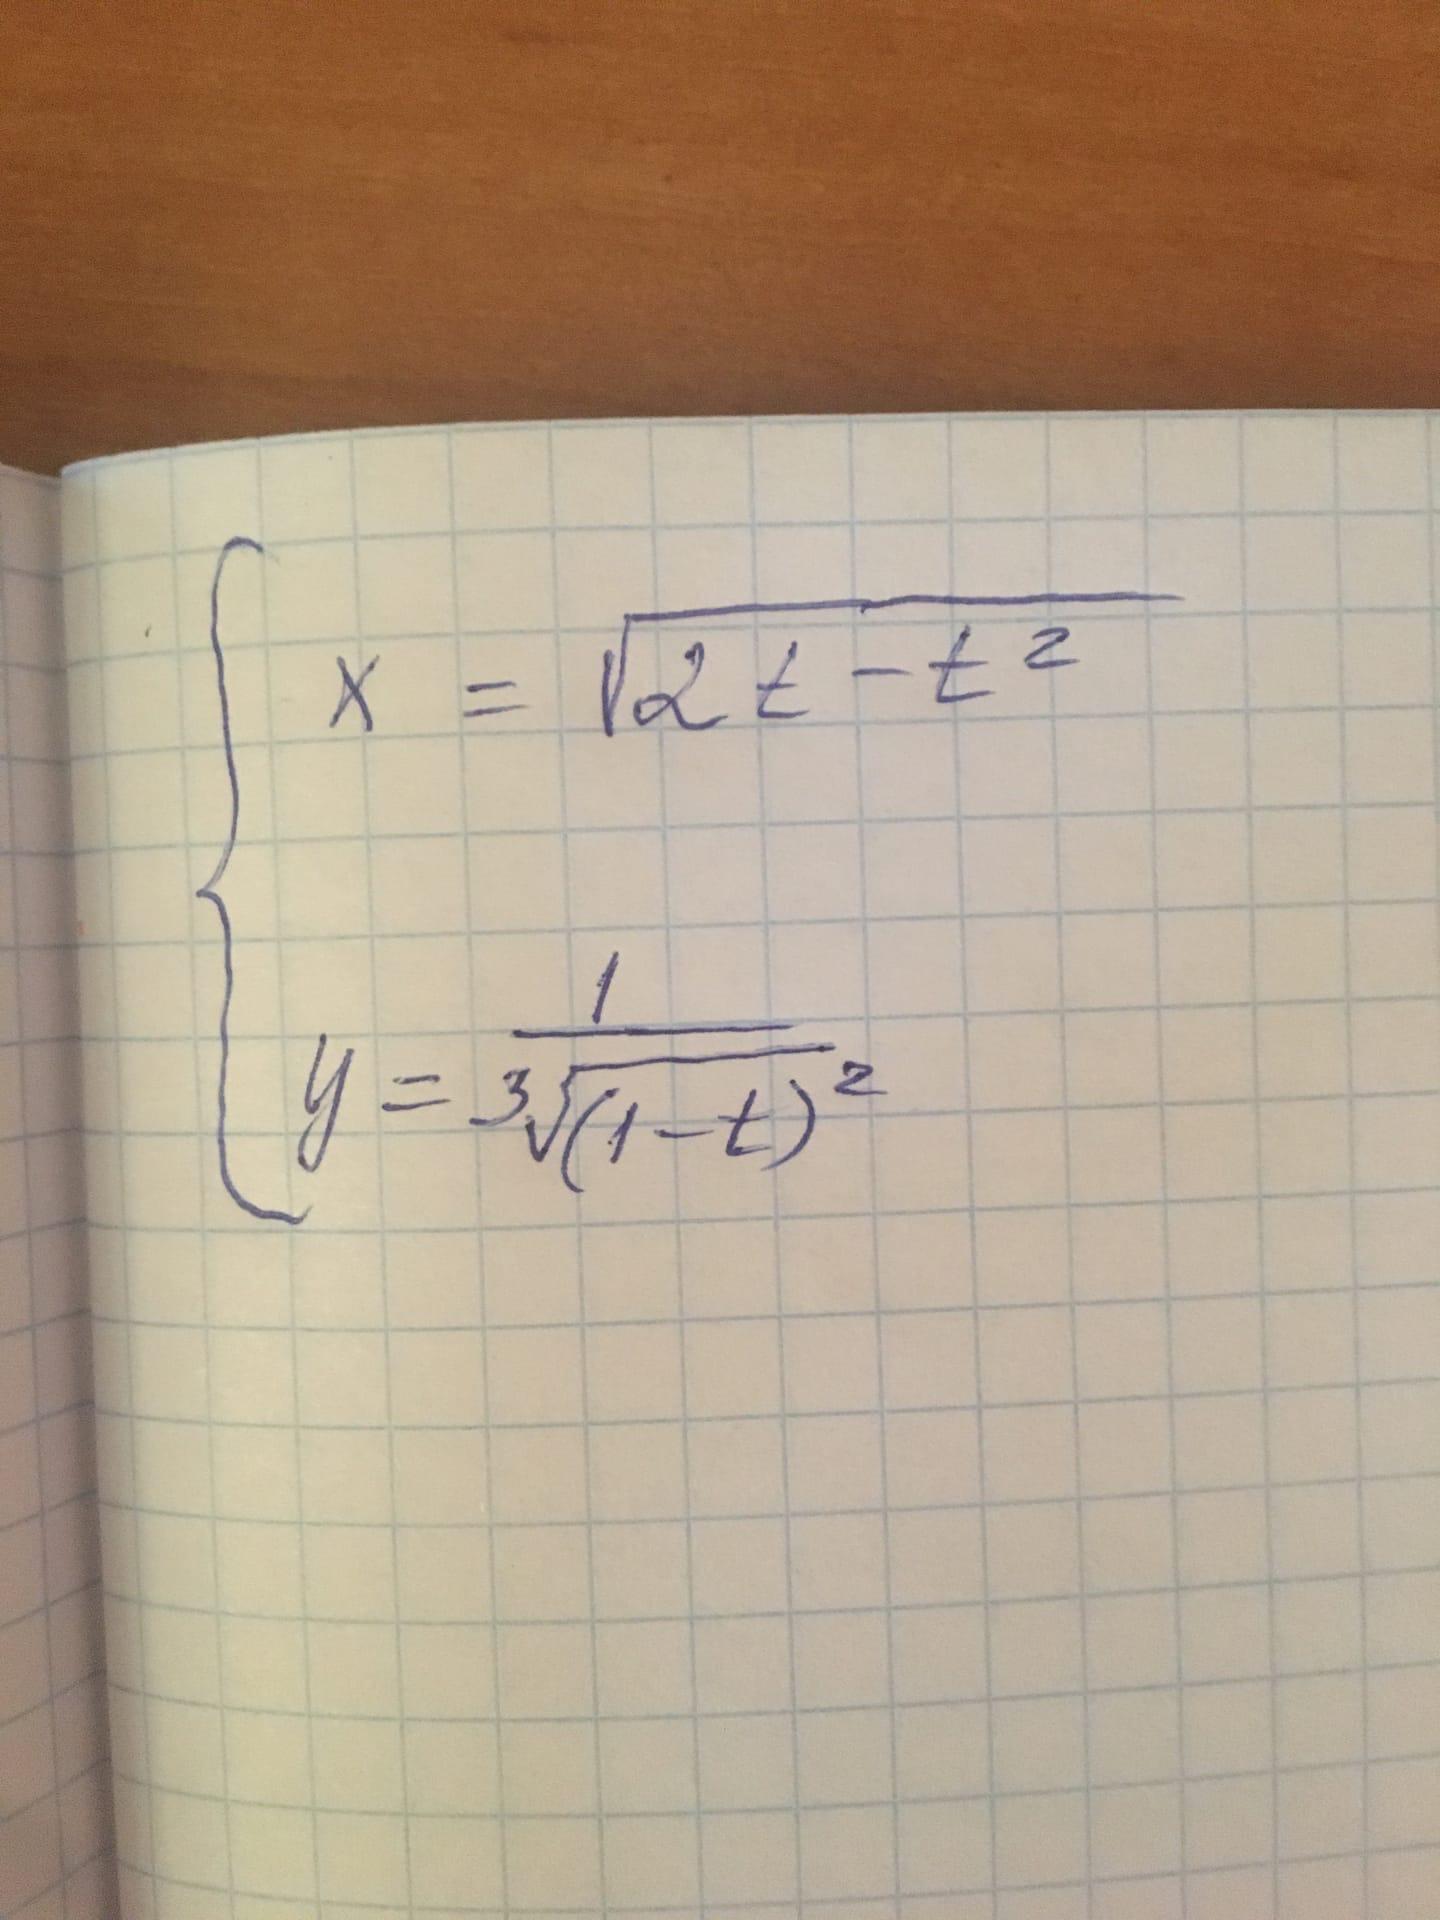 x = √2t - t²
y = 1/³√(1-t)²